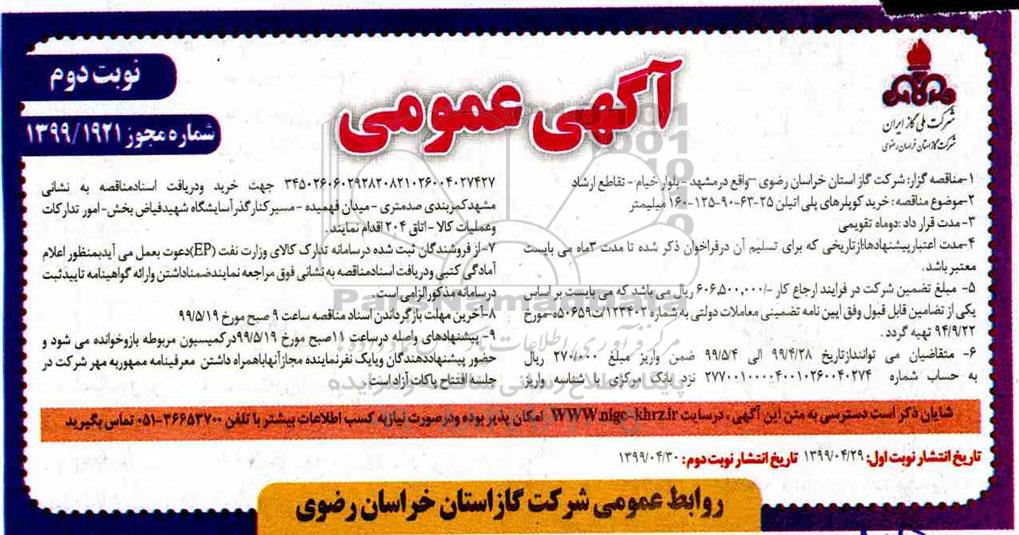 شرکت ملی گاز ایران
شرکت گاز استان خراسان رضوی
آگهی عمومی
نوبت دوم
شماره مجوز ۱۳۹۹/۱۹۲۱
۱-مناقصه گزار: شرکت گاز استان خراسان رضوی -واقع درمشهد - بلوار خیام - تقاطع ارشاد
۲-موضوع مناقصه: خرید کوپلرهای پلی اتیلن ۲۵-۶۳-۹۰-۱۲۵-۱۶۰ میلیمتر
۳-مدت قرار داد :دوماه تقویمی
۴-مدت اعتبارپیشنهادهاازتاریخی که برای تسلیم آن درفراخوان ذکر شده تا مدت ۳ماه می بایست
معتبر باشد.
۵- مبلغ تضمین شرکت در فرایند ارجاع کار /-۶۰۶,۵۰۰,۰۰۰ ریال می باشد که می بایست بر اساس
یکی از تضامین قابل قبول وفق آیین نامه تضمینی معاملات دولتی به شماره ۱۲۳۴۰۲/ت۵۰۶۵۹ه-مورخ
۹۴/۹/۲۲ تهیه گردد .
۶- متقاضیان می توانندازتاریخ ۹۹/۴/۲۸ الی ۹۹/۵/۴ ضمن واریز مبلغ ۲۷۰/۰۰۰ ریال
به حساب شماره ۲۷۷۰۰۱۰۰۰۰۴۰۰۱۰۲۶۰۰۴۰۲۷۴ نزد بانک مرکزی با شناسه واریز
۳۴۵۰۲۶۰۶۰۲۹۲۸۲۰۸۲۱۰۲۶۰۰۴۰۲۷۴۲۷ جهت خرید ودریافت اسنادمناقصه به نشانی
مشهدکمربندی صدمتری - میدان فهمیده - مسیرکنارگذرآسایشگاه شهیدفیاض بخش-امور تدارکات
وعملیات کالا - اتاق ۲۰۴ اقدام نمایند.
۷-از فروشندگان ثبت شده درسامانه تدارک کالای وزارت نفت (EP)دعوت بعمل می آیدبمنظور اعلام
آمادگی کتبی ودریافت اسنادمناقصه به نشانی فوق مراجعه نمایندضمناداشتن وارائه گواهینامه تاییدثبت
درسامانه مذکورالزامی است.
۸-آخرین مهلت بازگرداندن اسناد مناقصه ساعت ۹ صبح مورخ ۹۹/۵/۱۹
۹- پیشنهادهای واصله درساعت ۱۱صبح مورخ ۹۹/۵/۱۹درکمیسیون مربوطه بازوخوانده می شود و
حضور پیشنهاددهندگان ویایک نفرنماینده مجازآنهاباهمراه داشتن معرفینامه ممهوربه مهر شرکت در
جلسه افتتاح پاکات آزاد است.
شایان ذکر است دسترسی به متن این آگهی ، درسایت WWW.nigc-khrz.ir امکان پذیر بوده ودرصورت نیازبه کسب اطلاعات بیشتر با تلفن ۳۶۶۵۳۷۰۰-۰۵۱ تماس بگیرید
تاریخ انتشار نوبت اول: ۱۳۹۹/۰۴/۲۹ تاریخ انتشار نوبت دوم: ۱۳۹۹/۰۴/۳۰
روابط عمومی شرکت گازاستان خراسان رضوی